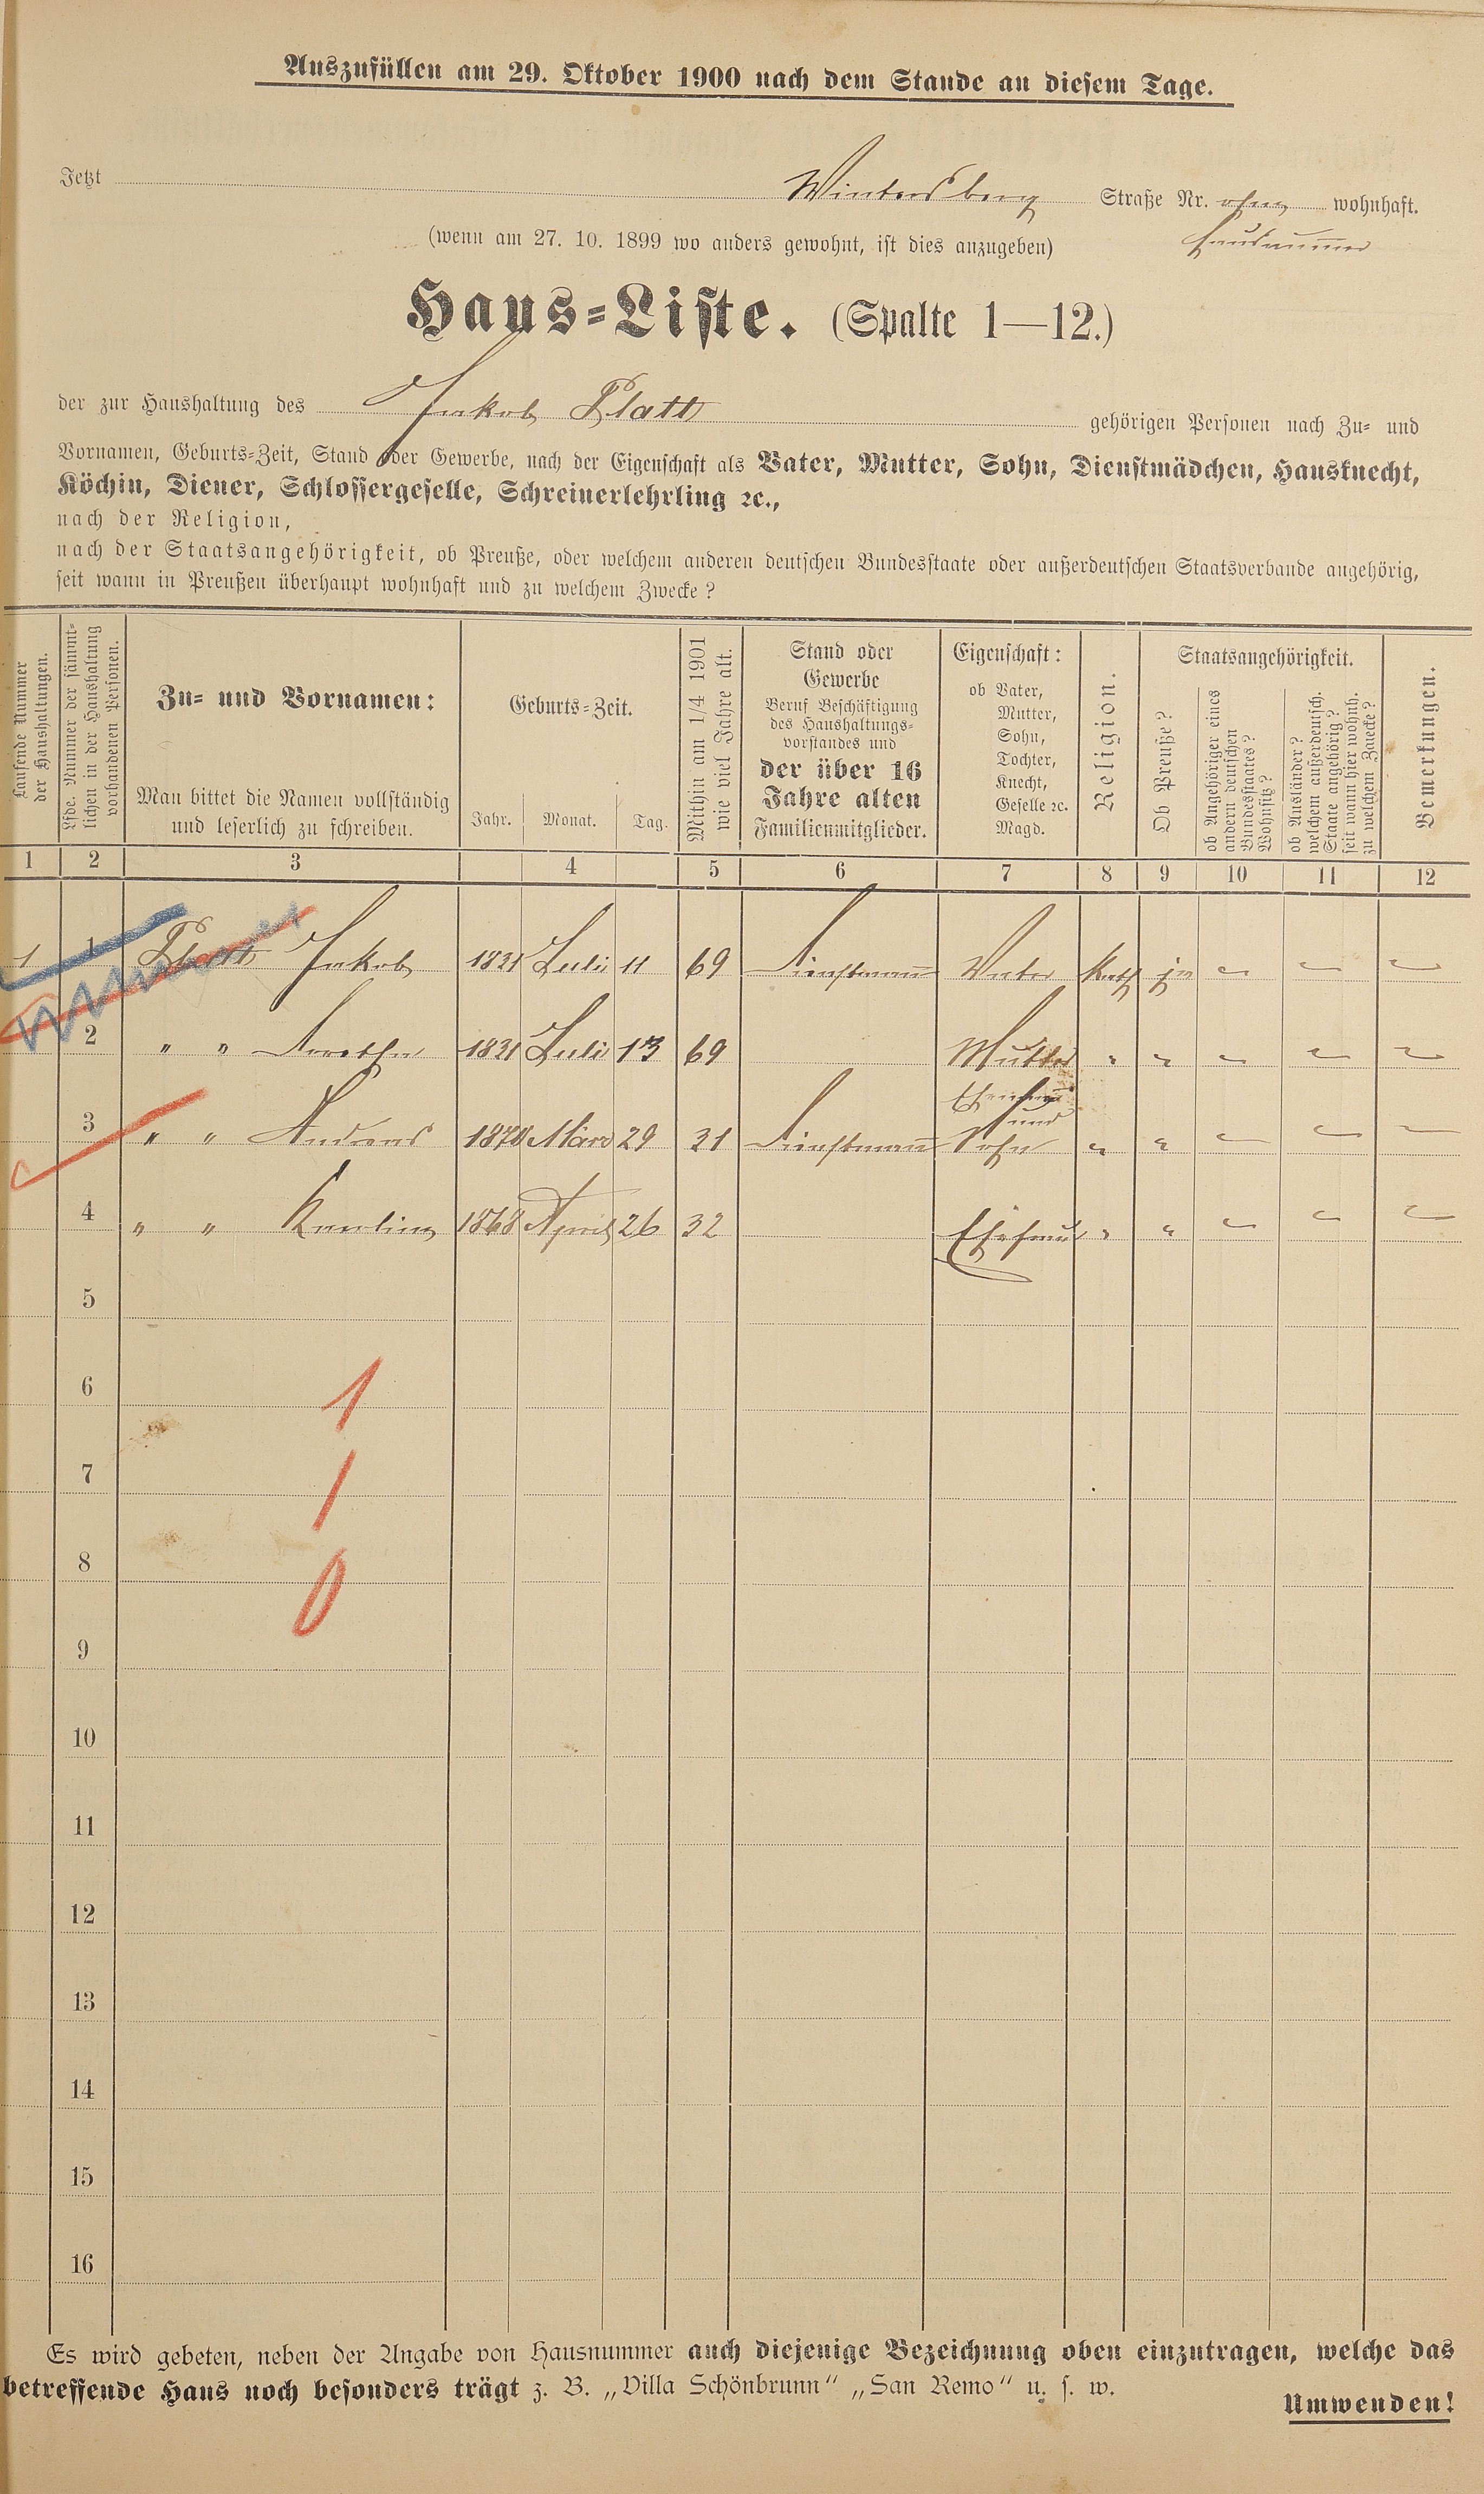 Auszufüllen am 29. Oktober 1900 nach dem Stande an diesem Tage.
Jetzt Wintersberg Straße Nr. ohne wohnhaft.
Hausnummer
(wenn am 27. 10. 1899 wo anders gewohnt, ist dies anzugeben)
Haus-Liste. (Spalte 1—12.)
der zur Haushaltung des Jakob Platt gehörigen Personen nach Zu- und
Vornamen, Geburts-Zeit, Stand oder Gewerbe, nach der Eigenschaft als Vater, Mutter, Sohn, Dienstmädchen, Hausknecht,
Köchin, Diener, Schlossergeselle, Schreinerlehrling ꝛc.,
nach der Religion,
nach der Staatsangehörigkeit, ob Preuße, oder welchem anderen deutschen Bundesstaate oder außerdeutschen Staatsverbande angehörig,
seit wann in Preußen überhaupt wohnhaft und zu welchem Zwecke?
Laufende Nummer
der Haushaltungen.
Lfde. Nummer der sämmt-
lichen in der Haushaltung
vorhandenen Personen.
Zu- und Vornamen:
Man bittet die Namen vollständig
und leserlich zu schreiben.
Geburts-Zeit.
Jahr. Monat. Tag.
Mithin am 1/4 1901
wie viel Jahre alt.
Stand oder
Gewerbe
Beruf Beschäftigung
des Haushaltungs-
vorstandes und
der über 16
Jahre alten
Familienmitglieder.
Eigenschaft:
ob Vater,
Mutter,
Sohn,
Tochter,
Knecht,
Geselle ꝛc.
Magd.
Religion.
Staatsangehörigkeit.
Ob Preuße?
ob Angehöriger eines
andern deutschen
Bundesstaates?
Wohnsitz?
ob Ausländer?
welchem außerdeutsch.
Staate angehörig?
seit wann hier wohnh.
zu welchem Zwecke?
Bemerkungen.
1 2 3 4 5 6 7 8 9 10 11 12
1 1 Platt Jakob 1831 Juli 11 69 Dienstmann Vater Kath ja
2 " " Dorothea 1831 Juli 13 69 Mutter " "
Ehemann
und
3 " " Andreas 1870 März 29 31 Dienstmann Sohn " "
4 " " Karolina 1868 April 26 32 Ehefrau " "
5
6
1
7
1
8
0
9
10
11
12
13
14
15
16
Es wird gebeten, neben der Angabe von Hausnummer auch diejenige Bezeichnung oben einzutragen, welche das
betreffende Haus noch besonders trägt z. B. „Villa Schönbrunn" „San Remo" u. s. w.
Umwenden!